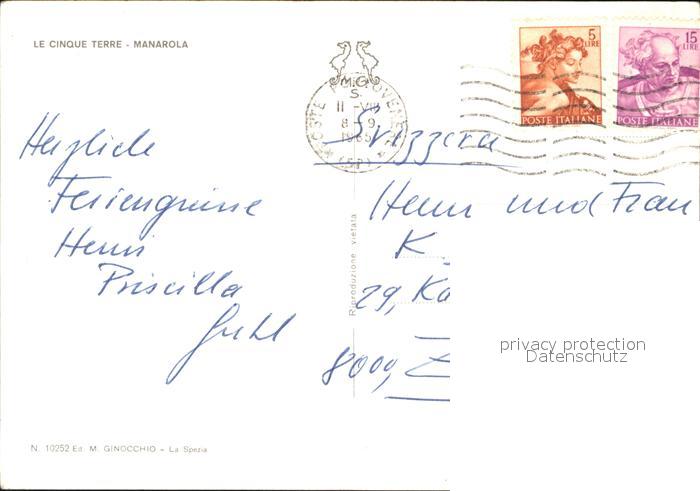 LE CINQUE TERRE - MANAROLA
5 LIRE
POSTE ITALIANE
15 LIRE
POSTE ITALIANE
POSTE
11 - VIII
8 - 9
(SP)
Svizzera
Herzliche
Feriengrüsse
Henri
Priscilla
Guhl
Herrn und Frau
K
29, Ka
8009, Z
Riproduzione vietata
privacy protection
Datenschutz
N. 10252 Ed. M. GINOCCHIO - La Spezia